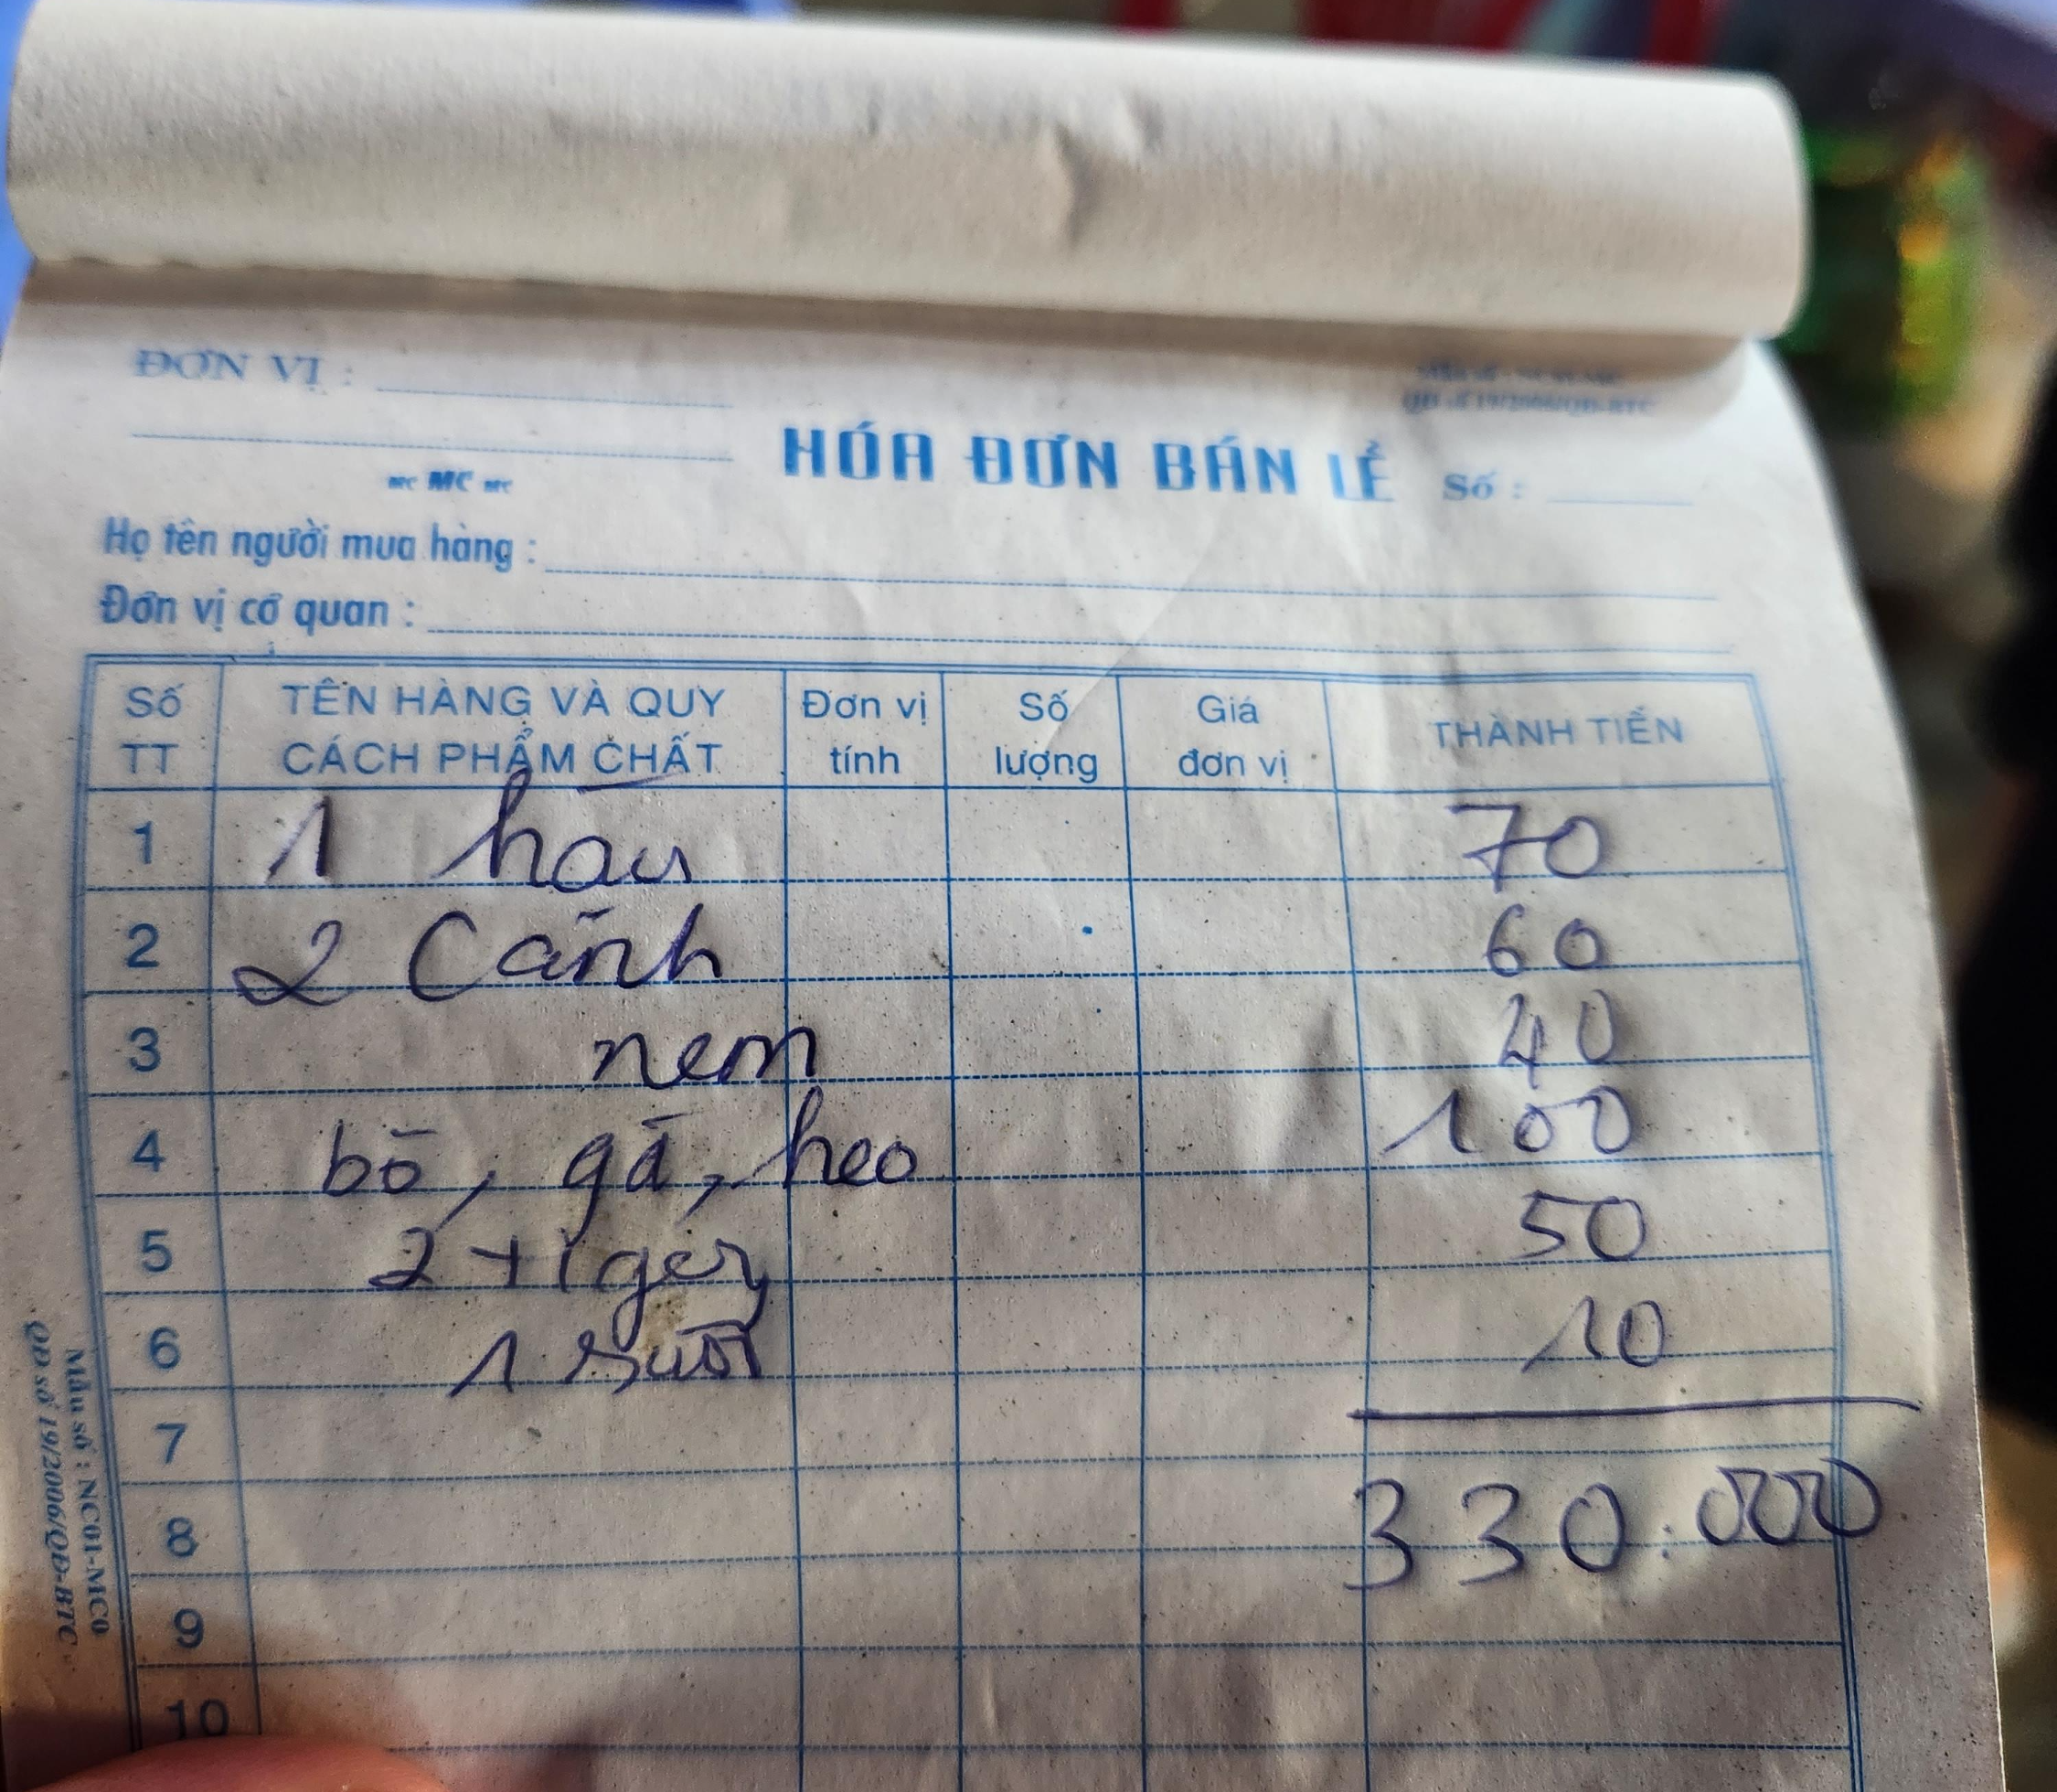 ĐƠN VỊ :
HÓA ĐƠN BÁN LẺ Số :
MC MC MC
Họ tên người mua hàng :
Đơn vị cơ quan :
Số TT TÊN HÀNG VÀ QUY CÁCH PHẨM CHẤT Đơn vị tính Số lượng Giá đơn vị THÀNH TIỀN
1 1 hàu 70
2 2 Cánh 60
3 nem 40
4 bò, gà, heo 100
5 2 tiger 50
6 1 suối 10
7
330.000
8
9
10
Mẫu số : NC01-MC0
QĐ số 19/2006/QĐ-BTC